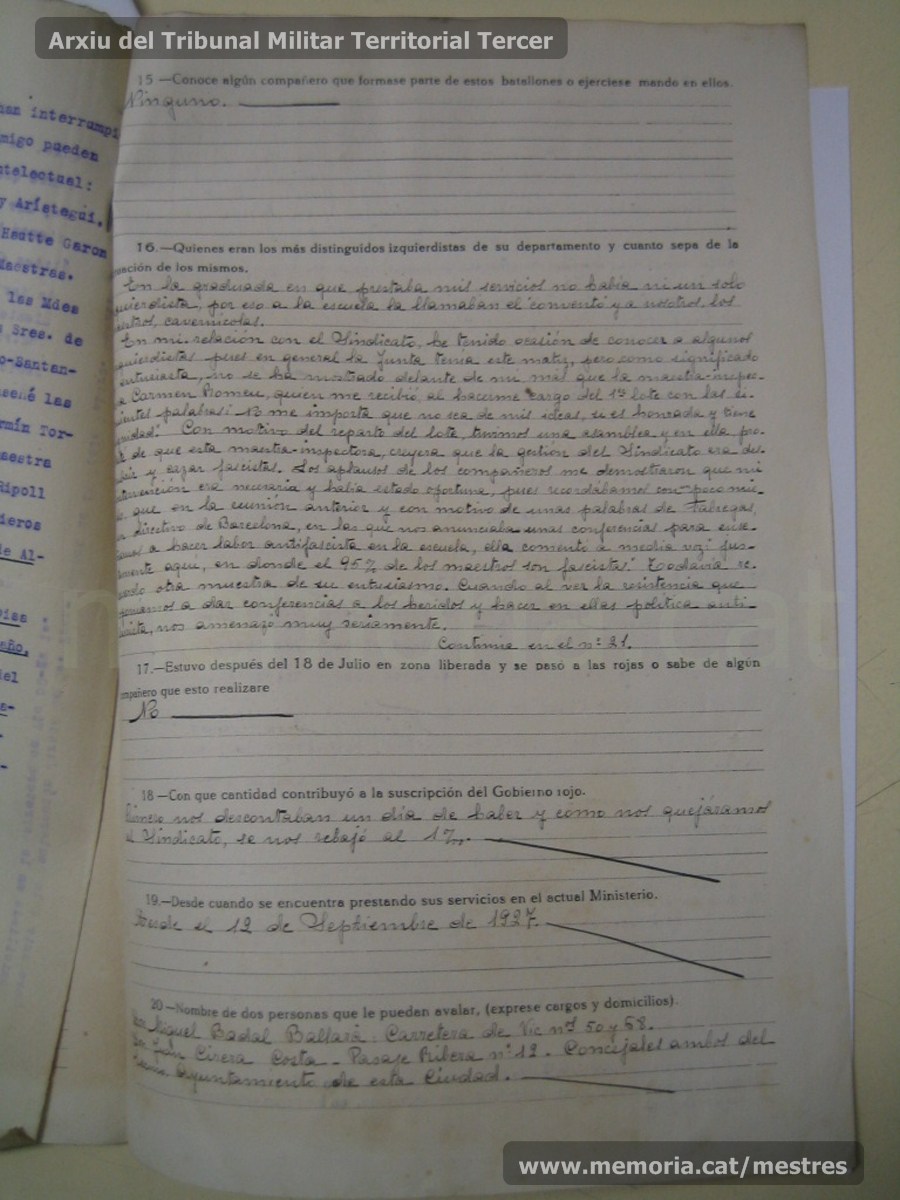 Arxiu del Tribunal Militar Territorial Tercer
han interrumpi
migo pueden
ntelectual:
y Arístegui.
Maestras.
las Mdes
Sres. de
o-Santan-
señé las
rmín Tor-
aestra
Ripoll
ieros
de Al-
15 —Conoce algún compañero que formase parte de estos batallones o ejerciese mando en ellos.
Ninguno.
16.—Quienes eran los más distinguidos izquierdistas de su departamento y cuanto sepa de la
uación de los mismos.
En la graduada en que prestaba mis servicios no había ni un solo
quierdista, por eso a la escuela la llamaban el "convento" y a nosotros, los
estros, cavernícolas.
En mi relación con el Sindicato, he tenido ocasión de conocer a algunos
quierdistas pues en general la Junta tenía este matiz, pero como significado
entusiasta, no se ha mostrado delante de mi más que la maestra-inspec-
a Carmen Romeu, quien me recibió al hacerme cargo del 1er lote con las si-
ientes palabras: No me importa que no sea de mis ideas, si es honrada y tiene
gnidad." Con motivo del reparto del lote, tuvimos una asamblea y en ella pro-
de que esta maestra-inspectora, creyera que la gestión del Sindicato era des-
y cazar fascistas. Los aplausos de los compañeros me demostraron que mi
tervención era necesaria y había estado oportuna, pues recordábamos con poco
que en la reunión anterior y con motivo de unas palabras de Fábregas,
directivo de Barcelona, en las que nos anunciaba unas conferencias para ense-
a hacer labor antifascista en la escuela, ella comentó a media voz: jus-
mente aquí, en donde el 95% de los maestros son fascistas! Todavía re-
otra muestra de su entusiasmo. Cuando al ver la resistencia que
poníamos a dar conferencias a los heridos y hacer en ellas política anti-
cista, nos amenazó muy seriamente.
Continúa en el nº 21.
17.—Estuvo después del 18 de Julio en zona liberada y se pasó a las rojas o sabe de algún
ompañero que esto realizare
No
18 —Con que cantidad contribuyó a la suscripción del Gobierno rojo.
Primero nos descontaban un día de haber y como nos quejáramos
al Sindicato, se nos rebajó al 1%.
19.—Desde cuando se encuentra prestando sus servicios en el actual Ministerio.
Desde el 12 de Septiembre de 1927.
20 —Nombre de dos personas que le puedan avalar, (exprese cargos y domicilios).
Don Miguel Badal Ballará. Carretera de Vic nos 50 y 58.
Don Juan Cirera Costa - Pasaje Ribera nº 12. Concejales ambos del
Ayuntamiento de esta Ciudad.
www.memoria.cat/mestres